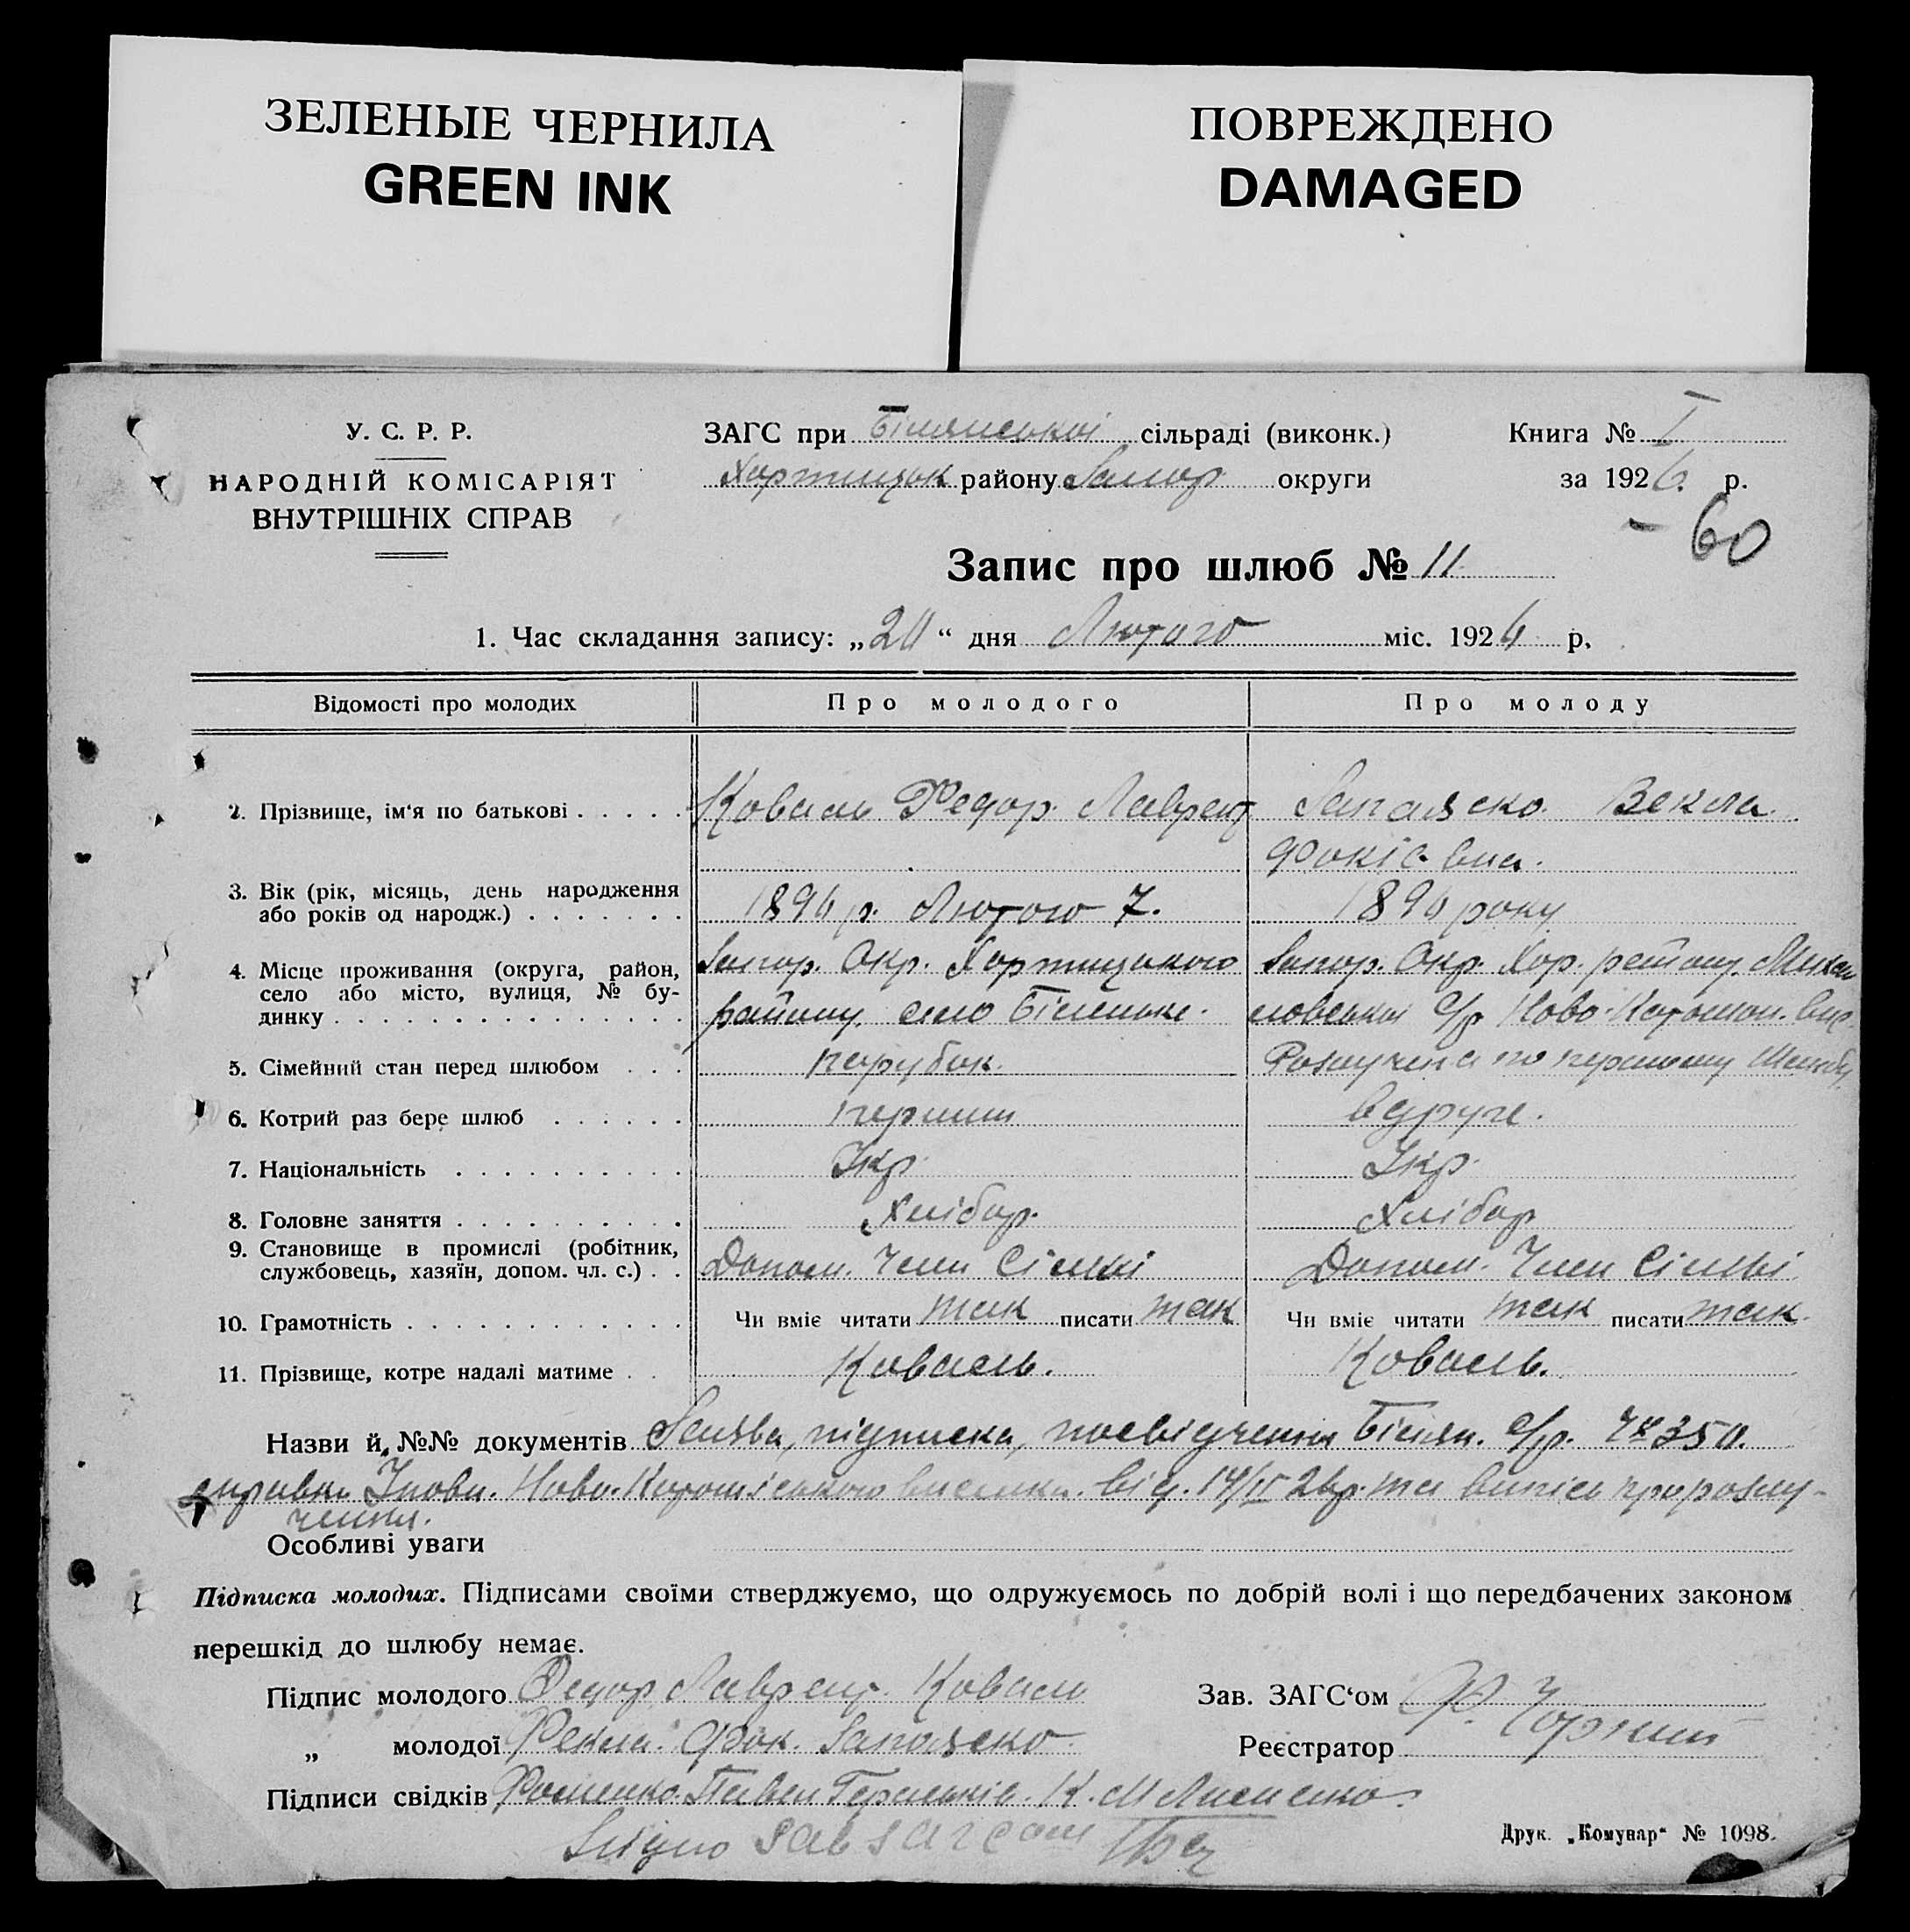 ЗЕЛЕНЫЕ ЧЕРНИЛА
GREEN INK
ПОВРЕЖДЕНО
DAMAGED
У. С. Р. Р.
НАРОДНІЙ КОМІСАРІЯТ
ВНУТРІШНІХ СПРАВ
ЗАГС при Білянської сільраді (виконк.)
Хортицьк району Запор округи
Книга № I
за 1926 р.
60
Запис про шлюб № 11
1. Час складання запису: „20“ дня Лютого міс. 1926 р.
Відомості про молодих Про молодого Про молоду
2. Прізвище, ім'я по батькові Коваль Федор Лаврент Векла
Фокіевна.
3. Вік (рік, місяць, день народження або років од народж.) 1896 р. Лютого 7. 1896 року
4. Місце проживання (округа, район, село або місто, вулиця, № будинку Запор. Окр. Хортицького Запор. Окр. Хор. району
району село Біленьке. с/р Ново
5. Сімейний стан перед шлюбом парубок. Розлучена по першому шлюбу
6. Котрий раз бере шлюб перший вдруге.
7. Національність Укр. Укр.
8. Головне заняття Хлібор. Хлібор
9. Становище в промислі (робітник, службовець, хазяїн, допом. чл. с.) Допом. Член Сімьі Допом. Член Сімьі
10. Грамотність Чи вміє читати так писати так Чи вміє читати так писати так.
11. Прізвище, котре надалі матиме Коваль. Коваль.
Назви й №№ документів Заява, підписка, посвідчення Білян. с/р. Ч 350.
справка Ново від. 14/II 26р. та випісь про розлу-
чення.
Особливі уваги
Підписка молодих. Підписами своїми стверджуємо, що одружуємось по добрій волі і що передбачених законом
перешкід до шлюбу немає.
Підпис молодого Федор Лаврент. Коваль
Зав. ЗАГС'ом Ф. Чорний
„ молодої Фекла. Фок.
Реєстратор
Підписи свідків Павел
Друк. „Комунар“ № 1098.